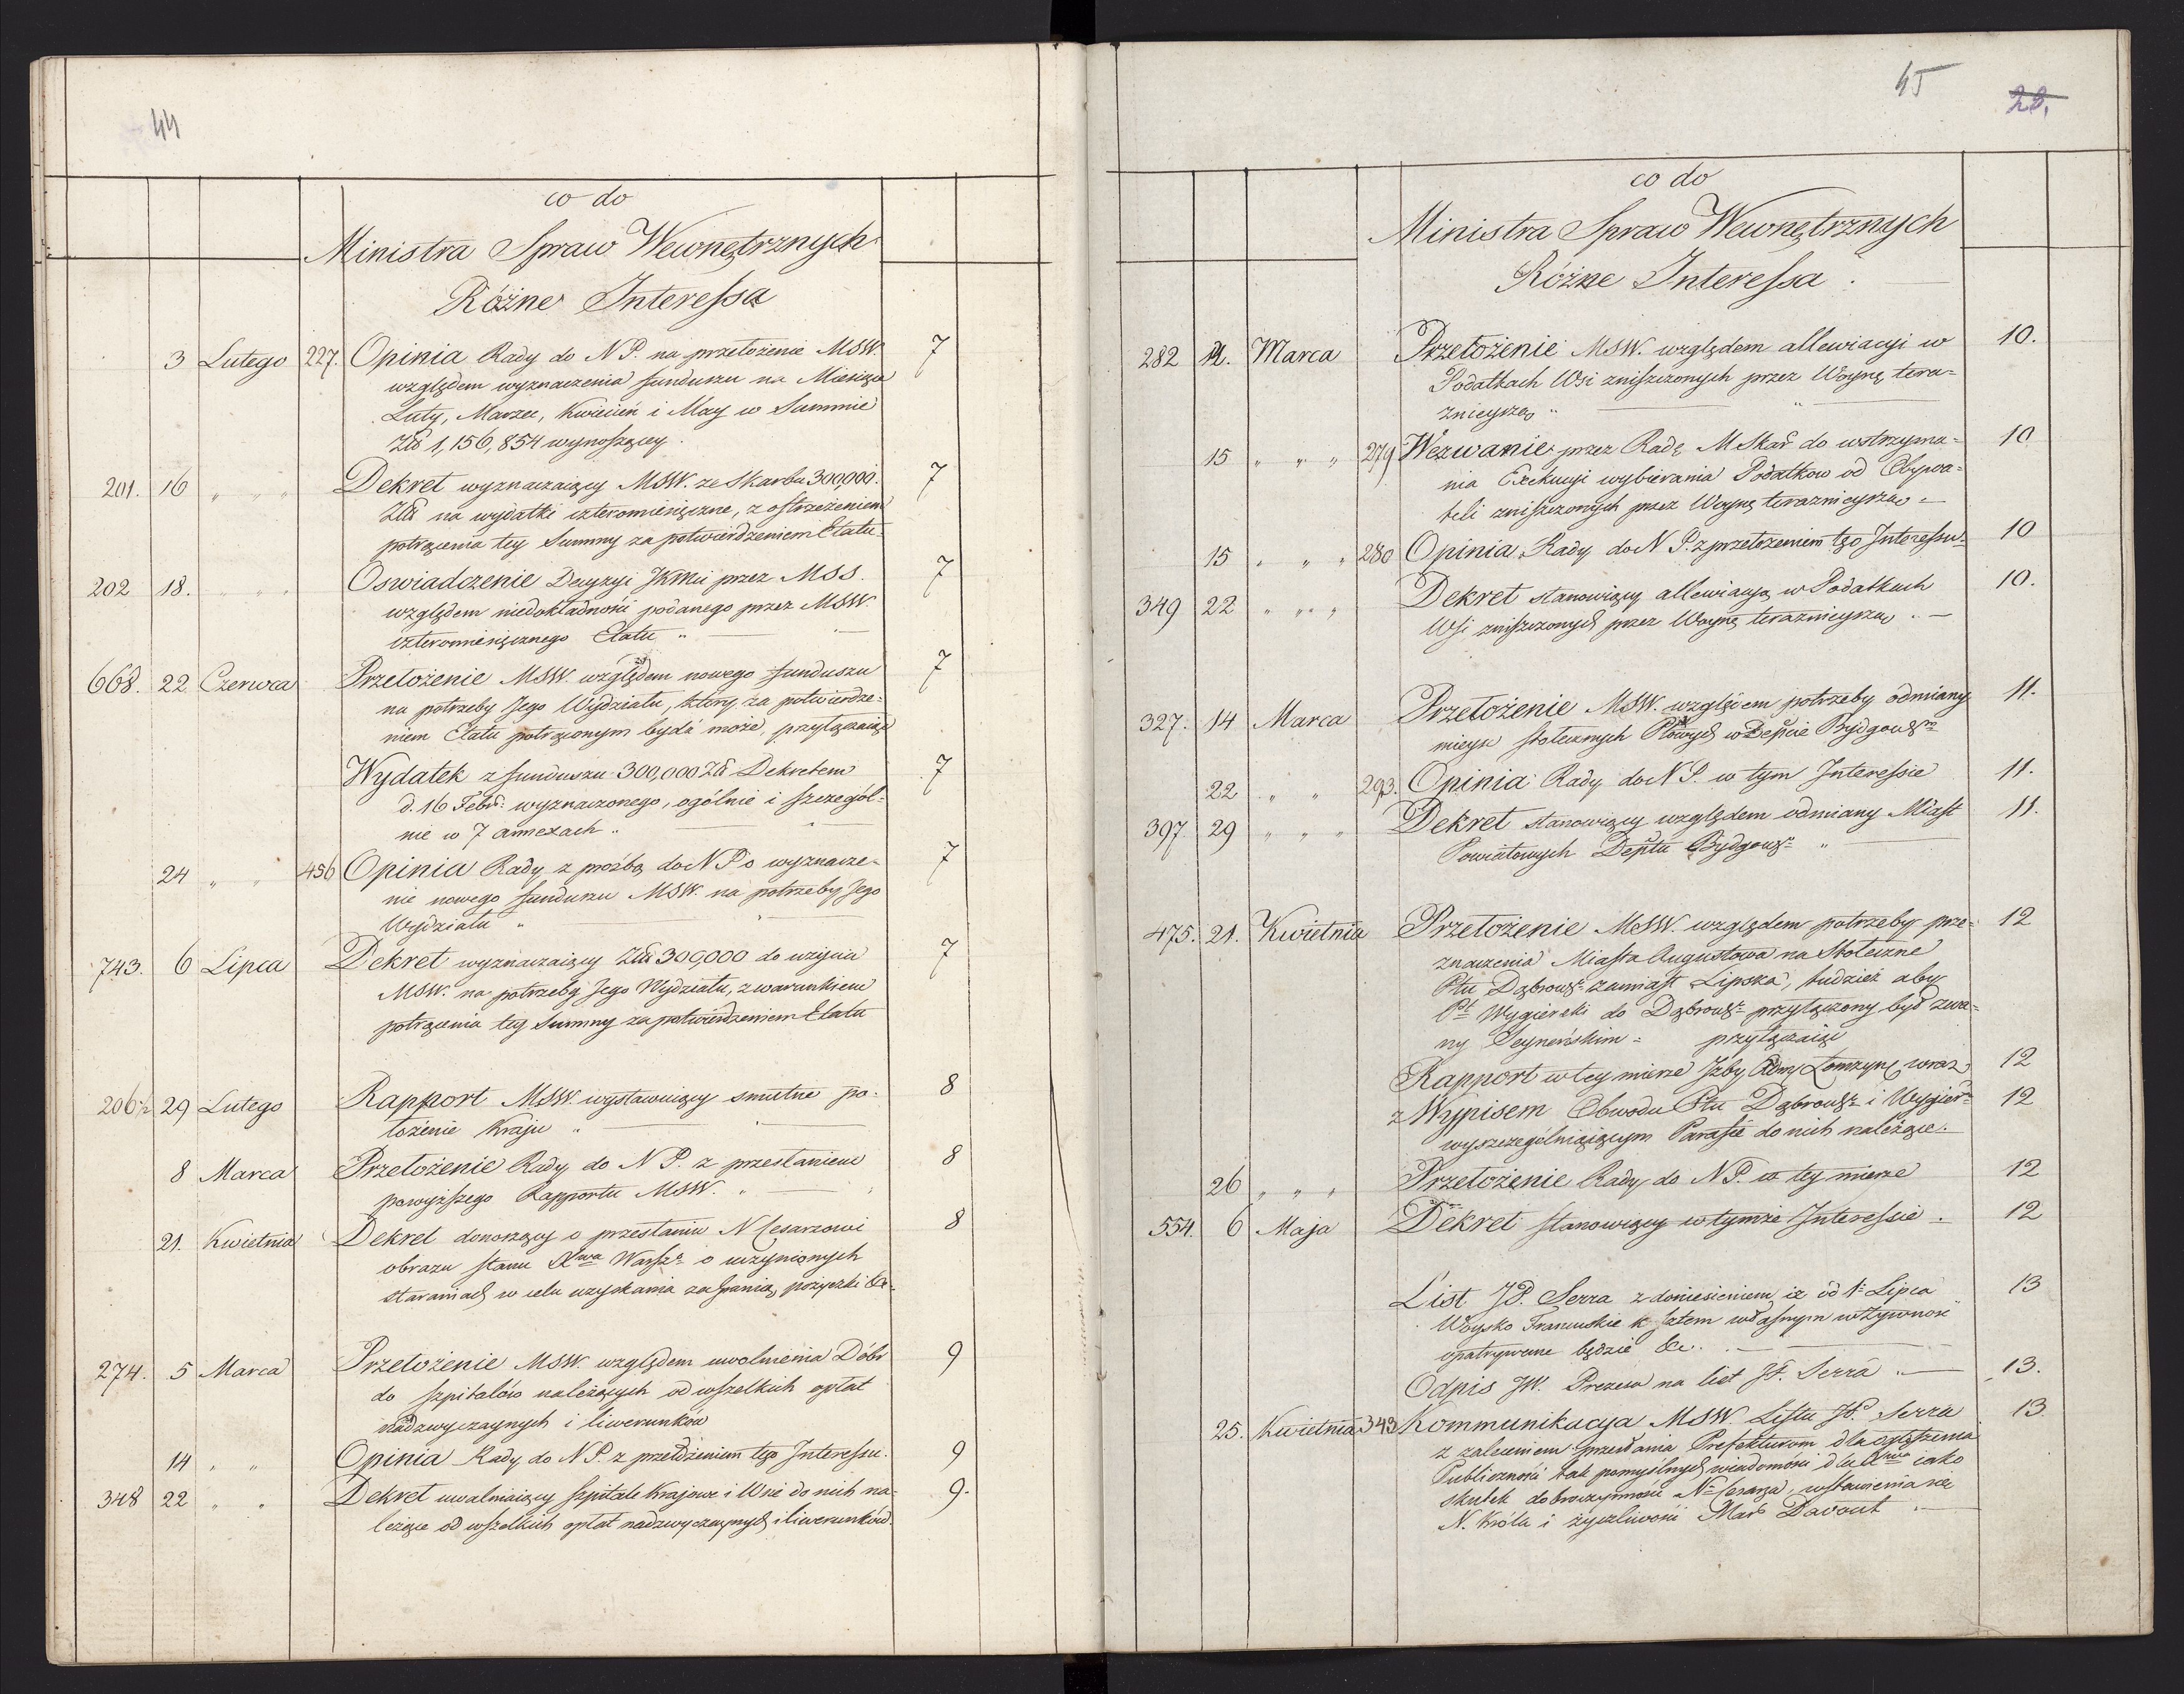 44
co do
Ministra Spraw Wewnętrznych
Różne Interessa
3 Lutego 227. Opinia Rady do N P. na przełożenie MSW. 7
względem wyznaczenia funduszu na Miesiące
Luty, Marzec, Kwiecień i May w Summie
Złł 1,156,854 wynoszącey.
201. 16 „ „ „ Dekret wyznaczaiący MSW. ze Skarbu 300,000. 7
Złł na wydatki czteromiesięczne, z ostrzeżeniem
potrącenia tey Summy za potwierdzeniem Etatu
202 18. „ „ „ Oswiadczenie Decyzyi JKMci przez MSS. 7
względem niedokładności podanego przez MSW.
czteromiesięcznego Etatu „
668. 22 Czerwca Przełożenie MSW. względem nowego funduszu 7
na potrzeby Jego Wydziału, który za potwierdze-
niem Etatu potrąconym bydź może, przyłączaiąc
Wydatek z funduszu 300,000 Złł Dekretem 7
d. 16 Febr: wyznaczonego, ogólnie i szczegól-
nie w 7 annexach „
24 „ „ 456 Opinia Rady z prośbą do N P. o wyznacze- 7
nie nowego funduszu MSW. na potrzeby Jego
Wydziału „
743. 6 Lipca Dekret wyznaczaiący Złł 300,000 do użycia 7
MSW. na potrzeby Jego Wydziału, z warunkiem
potrącenia tey Summy za potwierdzeniem Etatu
206½ 29 Lutego Rapport MSW. wystawuiący smutne po- 8
łożenie Kraju „
8 Marca Przełożenie Rady do N P. z przesłaniem 8
powyższego Rapportu MSW. „
21. Kwietnia Dekret donoszący o przesłaniu N Cesarzowi 8
obrazu stanu Xwa Warsz: o uczynionych
staraniach w celu uzyskania pożyczki &c.
274. 5 Marca Przełożenie MSW. względem uwolnienia Dóbr 9
do szpitalów należących od wszelkich opłat
nadzwyczaynych i liwerunków
14 „ „ Opinia Rady do N P. z przełożeniem tego Interessu. 9
348 22 „ „ Dekret uwalniaiący szpitale Kraiowe i Wsie do nich na- 9.
leżące od wszelkich opłat nadzwyczaynych i liwerunków.
45
23.
co do
Ministra Spraw Wewnętrznych
Różne Interessa.
282 12. Marca Przełożenie MSW. względem allewiacyi w 10.
Podatkach Wsi zniszczonych przez Woynę tera-
znieyszą „
15 „ „ „ 279 Wezwanie przez Radę M Skar do wstrzyma- 10
nia Exekucyi wybierania Podatkow od Obywa-
teli zniszczonych przez Woynę teraznieyszą.
15 „ „ „ 280 Opinia Rady do N P. z przełożeniem tego Interessu. 10
349 22 „ „ „ Dekret stanowiący allewiacyą w Podatkach 10.
Wsi zniszczonych przez Woynę teraznieyszą. —
327. 14 Marca Przełożenie MSW. względem potrzeby odmiany 11.
mieysc stołecznych Ptowych w Depcie Bydgoskm
22 „ „ 293. Opinia Rady do N P. w tym Interessie 11.
397. 29 „ „ „ Dekret stanowiący względem odmiany Miast 11.
Powiatowych Deptu Bydgosk: „
475. 21. Kwietnia Przełożenie MSW. względem potrzeby prze- 12
znaczenia Miasta Augustowa na Stołeczne
Ptu Dąbrowsk: zamiast Lipska, tudzież aby
Pt Wygierski do Dąbrowsk: przyłączony był zwa-
ny Seyneńskim = przyłączaiąc
Rapport w tey mierze Izby Adm: Łomzyń: wraz 12
z Wypisem Obwodu Ptu Dąbrowsk: i Wygiers: 12
wyszczególniaiącym Parafie do nich należące.
26 „ „ „ Przełożenie Rady do N P. w tey mierze 12
554. 6 Maja Dekret stanowiący w tymże Interessie. 12
List JP. Serra z doniesieniem iż od 1: Lipca 13
Woysko Francuskie własnym w żywność
opatrywane będzie &c.
Odpis JW. Prezesa na list JP. Serra. — 13.
25. Kwietnia 343 Kommunikacya MSW. Listu JP. Serra 13
z zaleceniem przesłania Prefekturom dla ogłoszenia
Publiczności tak pomyślnych wiadomości dla Xwa iako
skutek dobroczynności N: Cesarza, wstawienia się
N. Króla i życzliwości Mar: Davout —